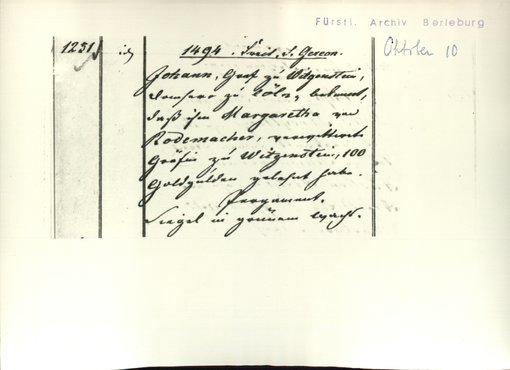 Fürstl. Archiv Berleburg
Oktober 10
1251
id.
1494. Frid. S. Gereon.
Johann, Graf zu Witgenstein,
Domherr zu Cöln, bekennt,
daß ihm Margaretha von
Rodemacher, verwittwete
Gräfin zu Witgenstein, 100
Goldgulden gelehnt habe.
Pergament.
Siegel in grünem Wachs.